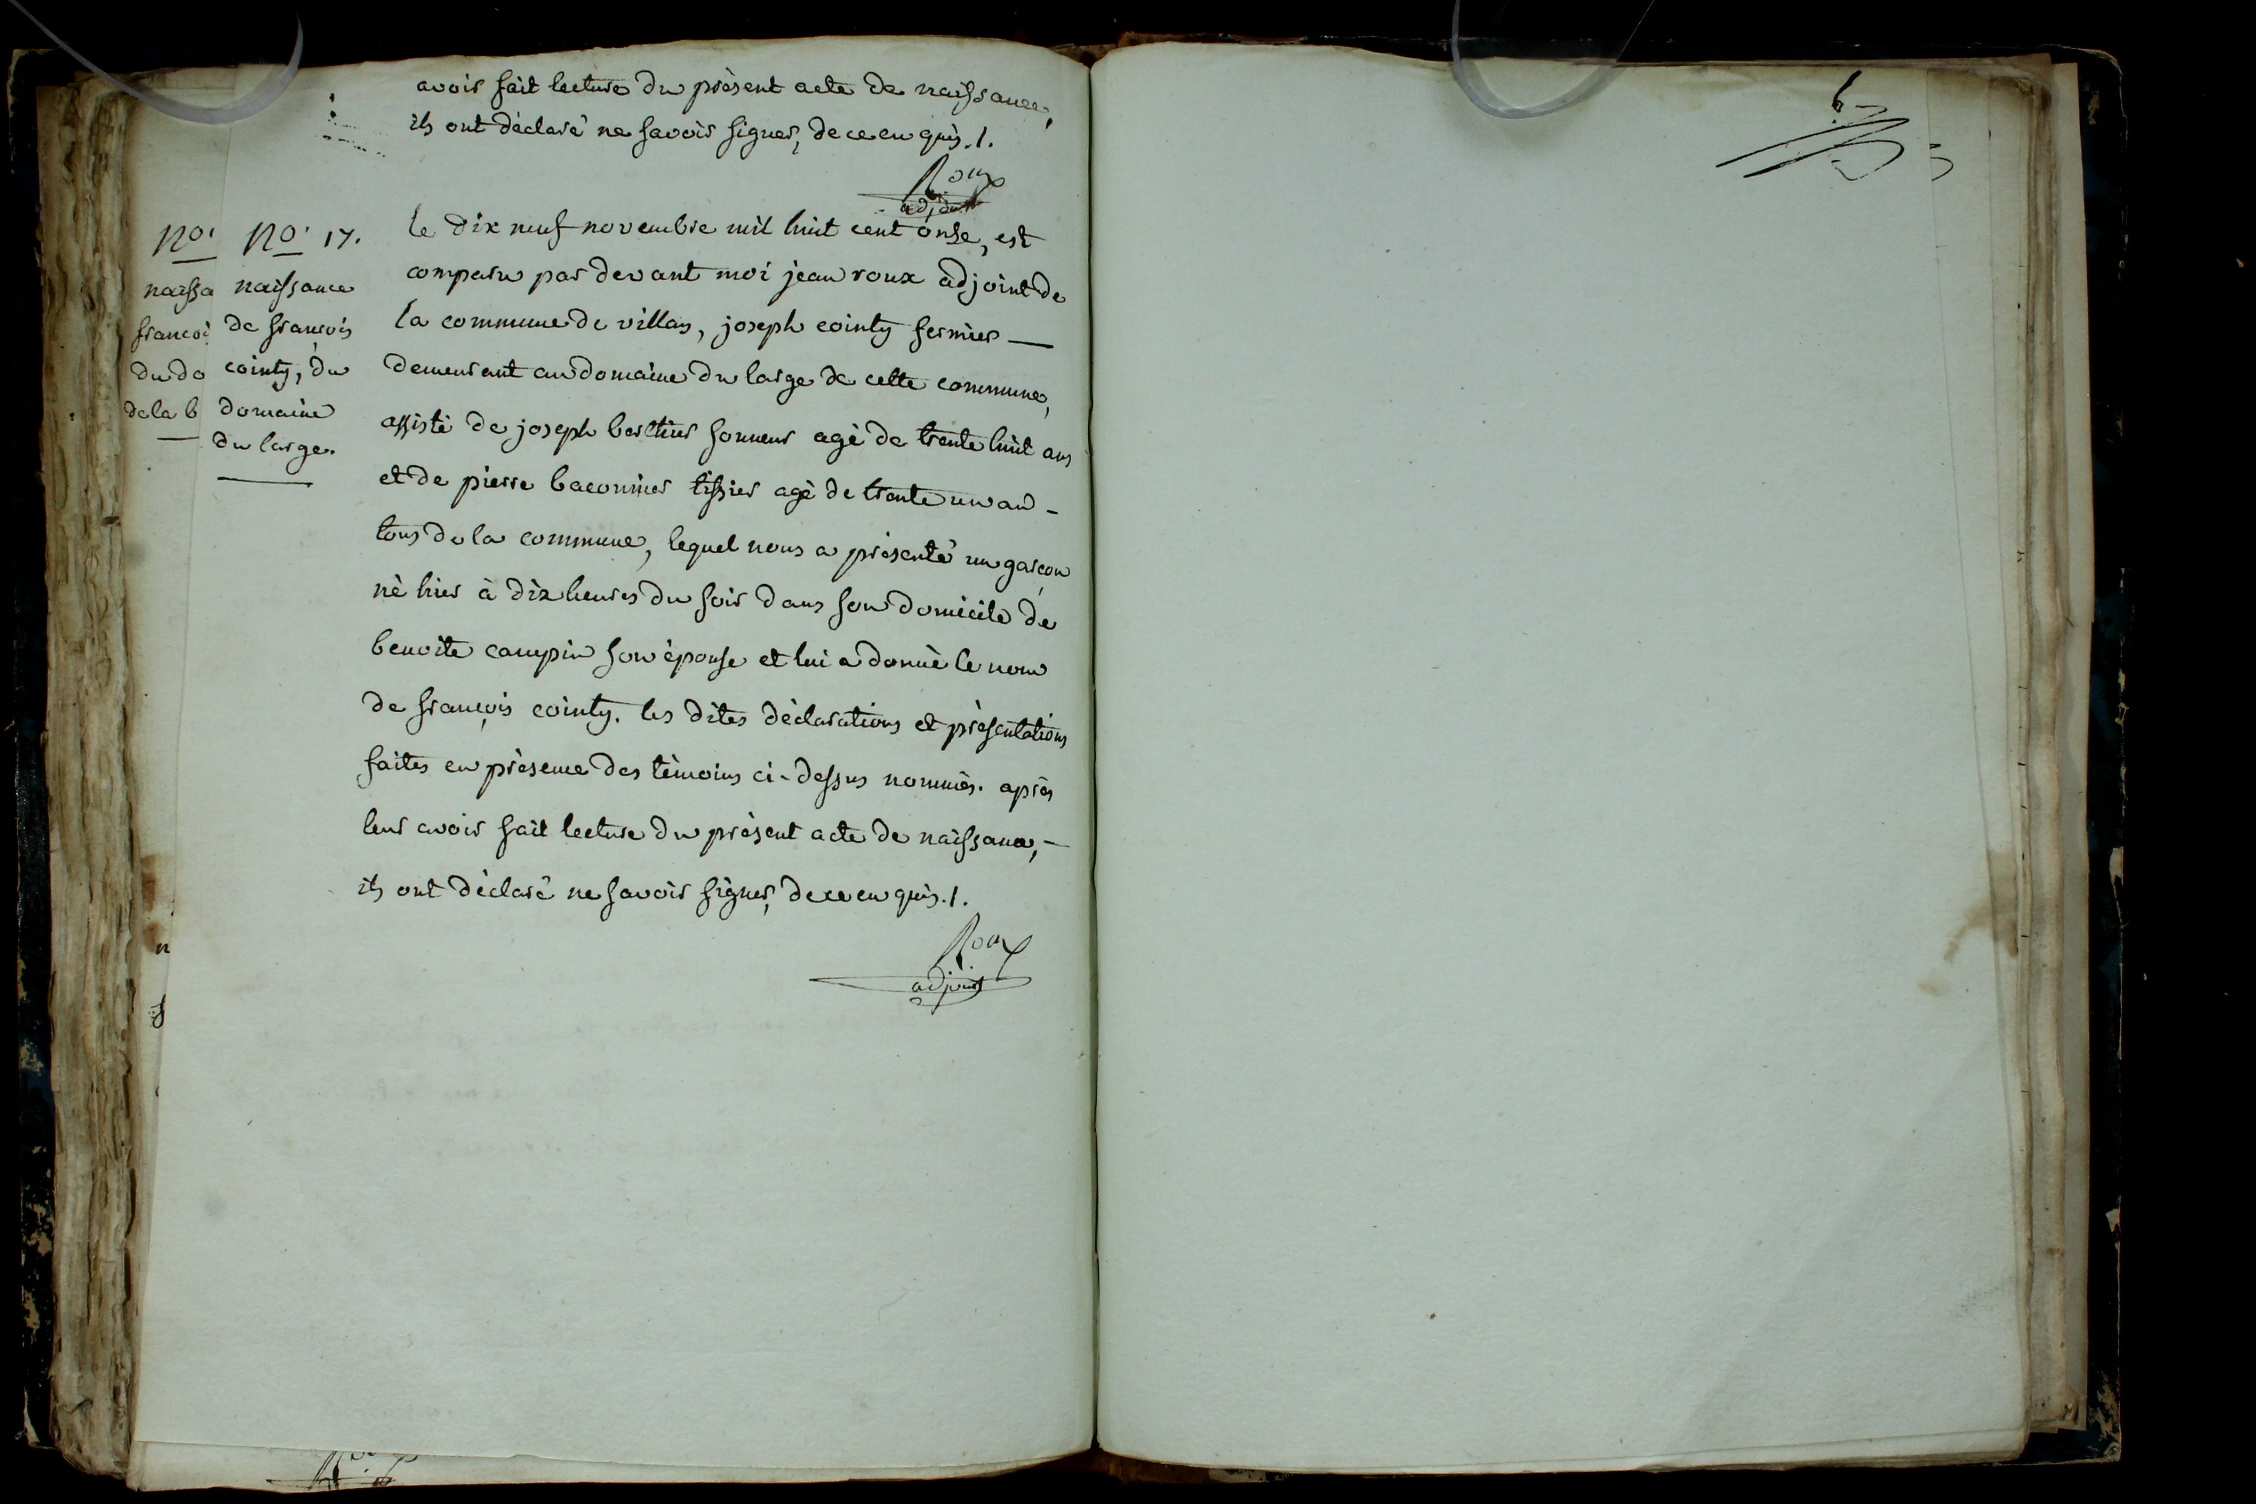 avoir fait lecture du présent acte de naissance,
ils ont déclaré ne savoir signer, de ce enquis./.
Roux
adjoint
no. 17.
naissance
de françois
cointy, du
domaine
du large.
le dix neuf novembre mil huit cent onse, est
comparu par devant moi jean roux adjoint de
la commune de villay, joseph cointy fermier
demeurant au domaine du large de cette commune,
assisté de joseph berthier sonneur agé de trente huit ans
et de pierre baconnier tissier agé de trente un an
tous de la commune, lequel nous a présenté un garçon
né hier à dix heures du soir dans son domicile de
benoite campin son épouse et lui a donné le nom
de françois cointy. les dites déclarations et présentations
faites en présence des témoins ci-dessus nommés. après
leur avoir fait lecture du présent acte de naissance,
ils ont déclaré ne savoir signer, de ce enquis./.
Roux
adjoint
no.
naissa
françoi
du do
de la b
n
6